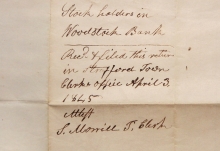 Stock holders in
Woodstock Bank
Recd & filed this return
in Strafford Town
Clerks office April 3
1845
Attest
S. Morrill T. Clerk